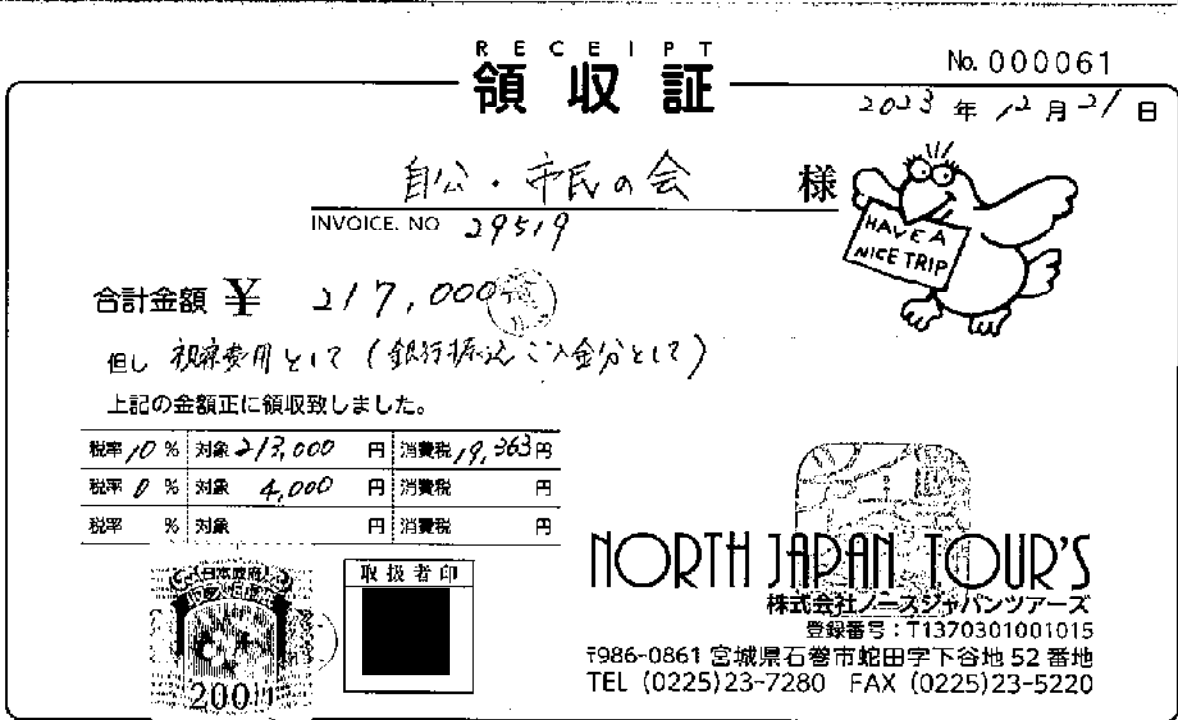 RECEIPT
領収証
No. 000061
2023年12月21日
自公・市民の会 様
INVOICE. NO 29519
HAVE A
NICE TRIP
合計金額 ¥ 217,000
但し 視察費用として(銀行振込ご入金分として)
上記の金額正に領収致しました。
税率10% 対象213,000円 消費税19,363円
税率0% 対象4,000円 消費税 円
税率 % 対象 円 消費税 円
日本政府
200円
取扱者印
NORTH JAPAN TOUR'S
株式会社ノースジャパンツアーズ
登録番号:T1370301001015
〒986-0861 宮城県石巻市蛇田字下谷地52番地
TEL (0225)23-7280 FAX (0225)23-5220